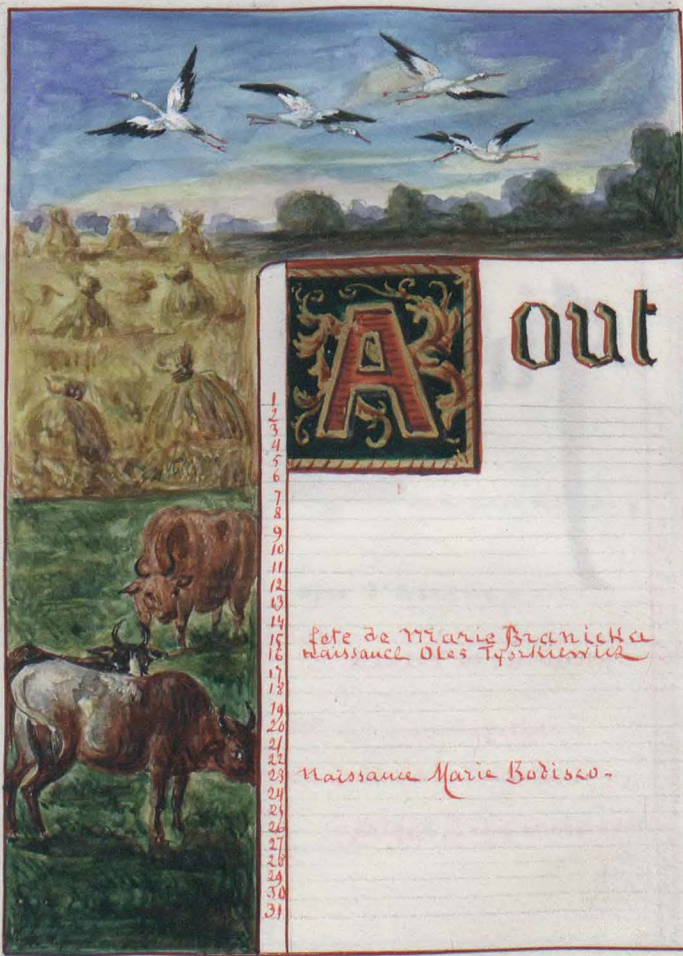 Aout
1
2
3
4
5
6
7
8
9
10
11
12
13
14
15 fete de Marie Branicka
16 naissance Oles Tyszkiewicz
17
18
19
20
21
22
23 naissance Marie Bodisco.
24
25
26
27
28
29
30
31